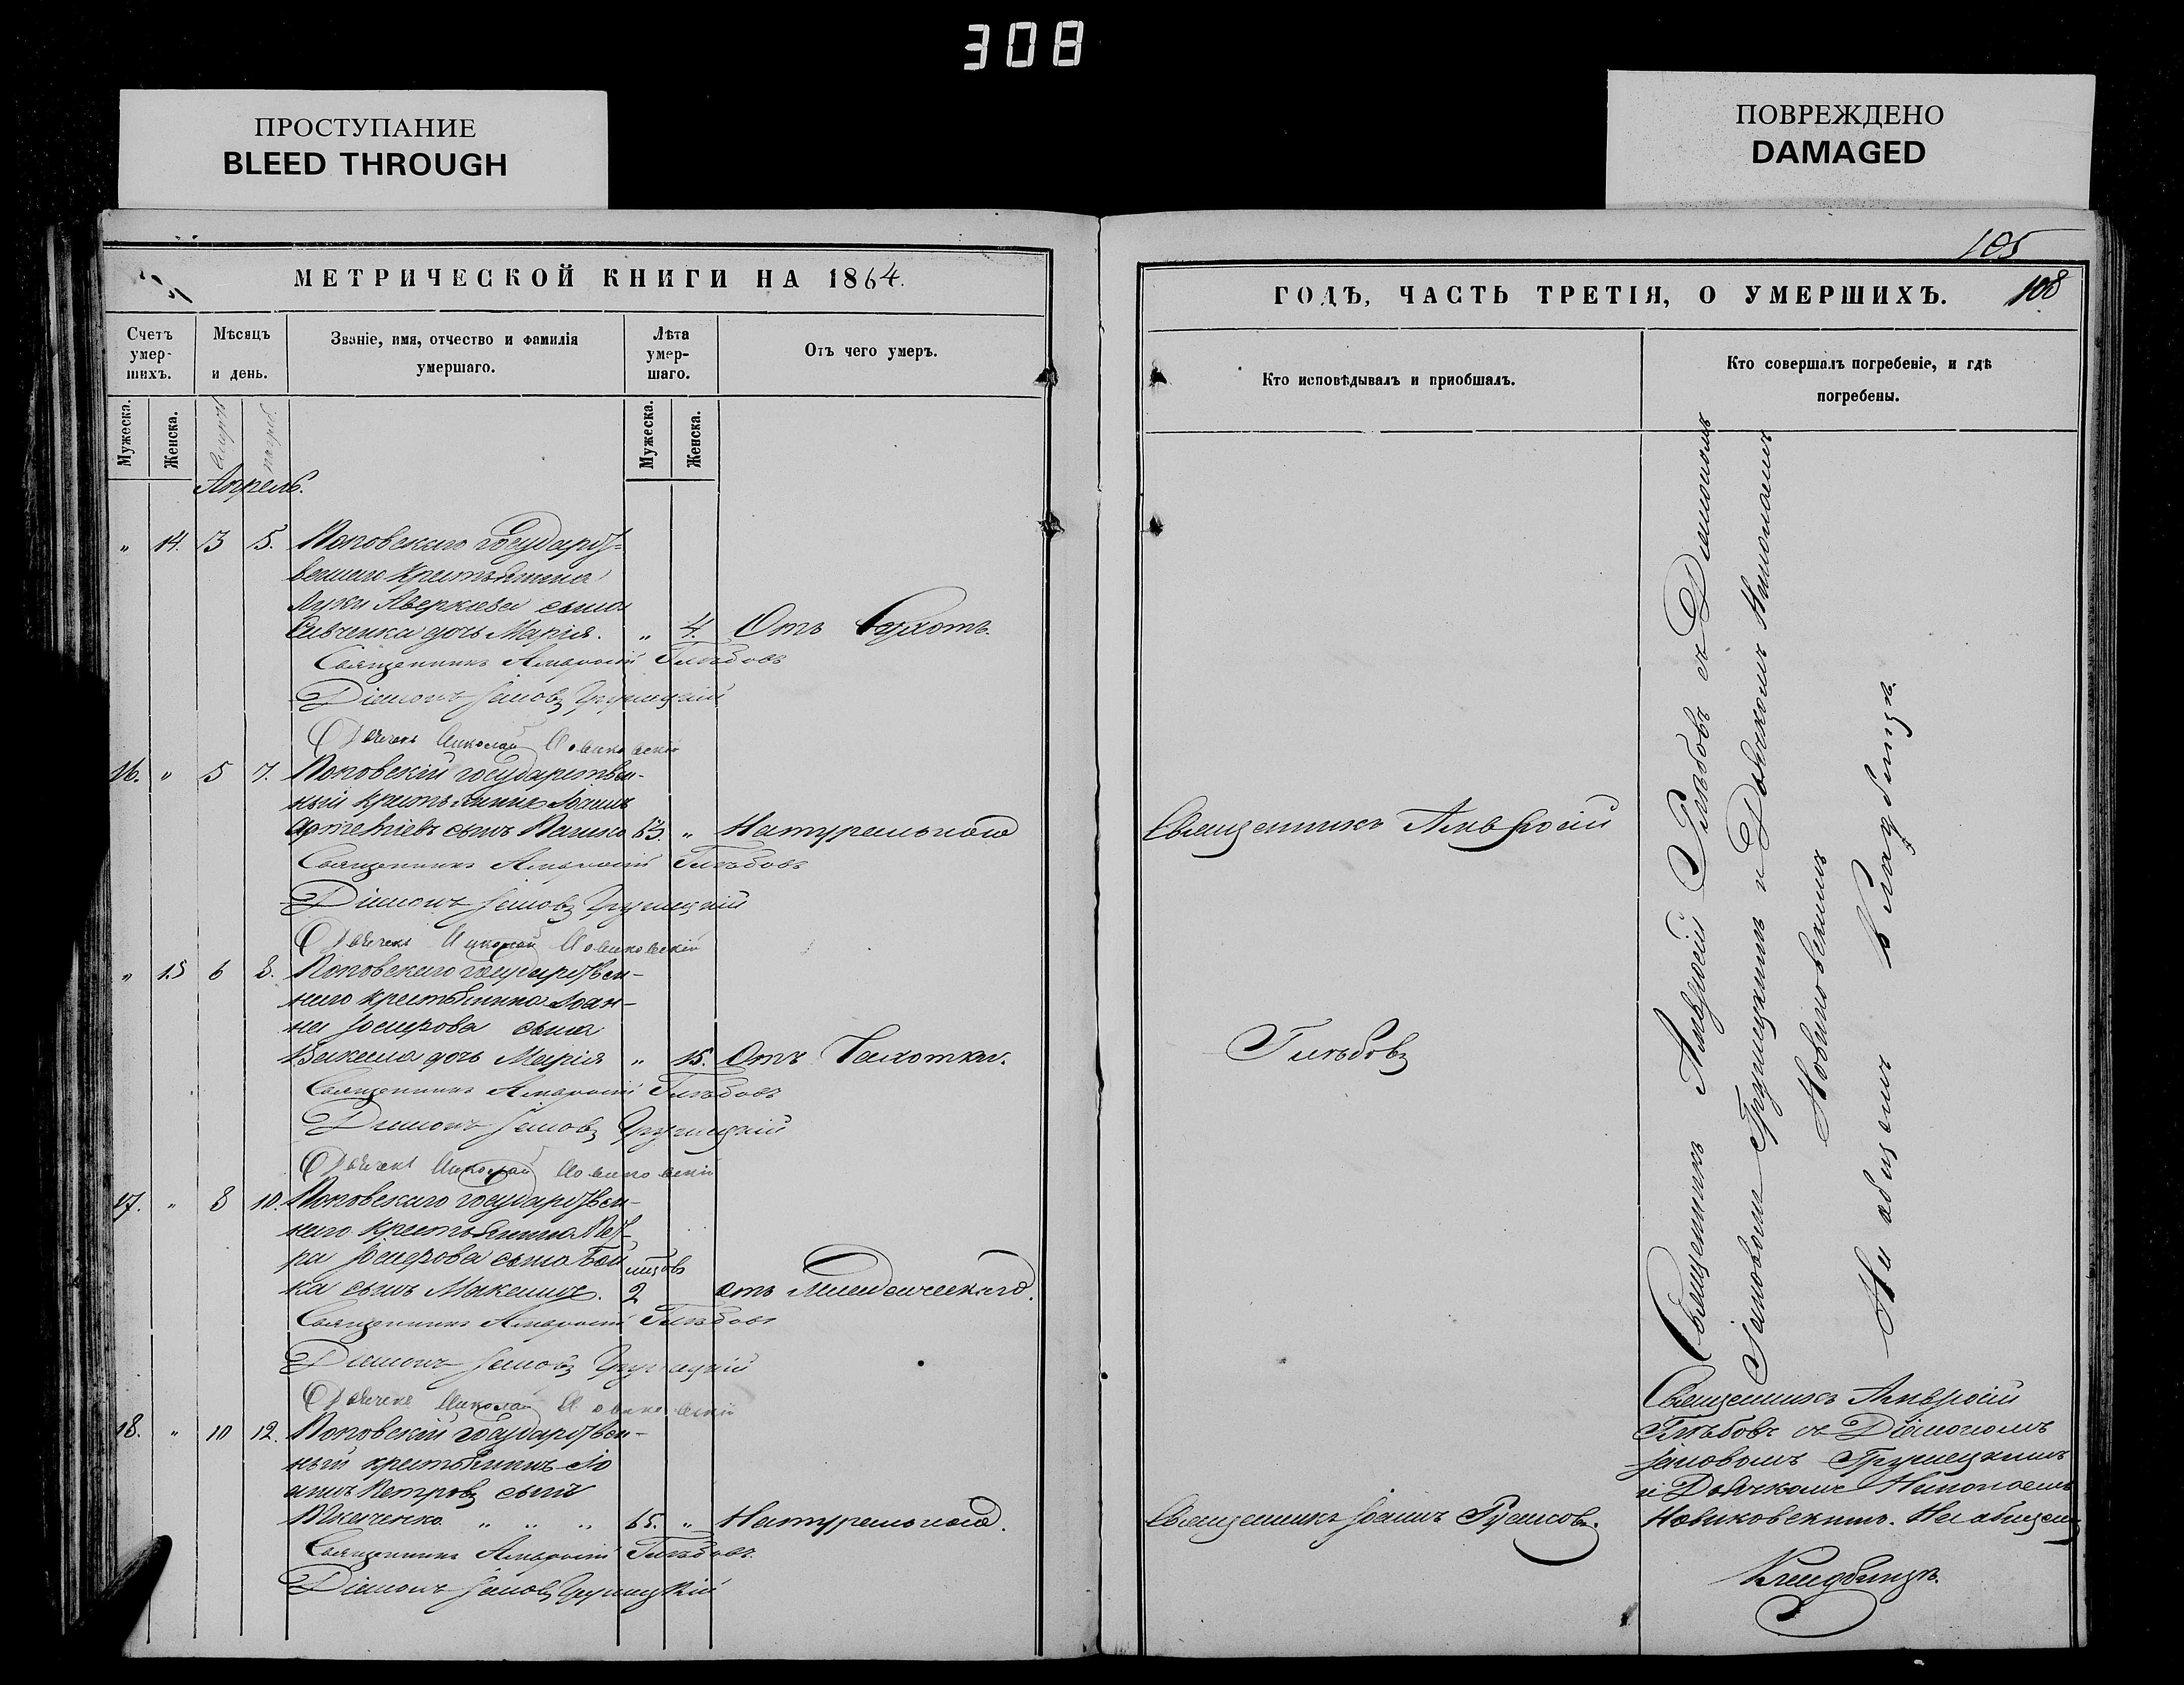 308
ПРОСТУПАНИЕ
BLEED THROUGH
ПОВРЕЖДЕНО
DAMAGED
МЕТРИЧЕСКОЙ КНИГИ НА 1864.
Счетъ умер-шихъ.
Мѣсяцъ и день.
Званіе, имя, отчество и фамилія умершаго.
Лѣта умер-шаго.
Отъ чего умеръ.
Мужеска.
Женска.
Мужеска.
Женска.
Апрель.
" 14. 3 5. Поповскаго государст-
веннаго крестьянина
Луки Аверкіева сына
Сивченка дочь Марія. " 4. Отъ
Священникъ Амвросій Глѣбовъ
Діаконъ Іаковъ Грушецкій
Дьячекъ Николай Новиковскій
16. " 5 7. Поповскій государствен-
ный крестьянинъ
сынъ 63. " Натуральною
Священникъ Амвросій Глѣбовъ
Діаконъ Іаковъ Грушецкій
Дьячекъ Николай Новиковскій
" 15 6 8. Поповскаго государствен-
наго крестьянина Іоан-
на сына
дочь Марія " 15. Отъ Чахотки.
Священникъ Амвросій Глѣбовъ
Діаконъ Іаковъ Грушецкій
Дьячекъ Николай Новиковскій
17. " 8 10. Поповскаго государствен-
наго крестьянина Пет-
ра сына Бой
ка сынъ Максимъ. 2 отъ Младенческаго.
Священникъ Амвросій Глѣбовъ
Діаконъ Іаковъ Грушецкій
Дьячекъ Николай Новиковскій
18. " 10 12. Поповскій государствен-
ный крестьянинъ Іо
аннъ Петровъ сынъ
" " " 65. " Натуральною.
Священникъ Амвросій Глѣбовъ.
Діаконъ Іаковъ Грушецкій
105
108
ГОДЪ, ЧАСТЬ ТРЕТІЯ, О УМЕРШИХЪ.
Кто исповѣдывалъ и приобщалъ.
Кто совершалъ погребеніе, и гдѣ погребены.
Священникъ Амвросій
Глѣбовъ
Священникъ Іоаннъ
Священникъ Амвросій Глѣбовъ съ Діакономъ
Іаковомъ Грушецкимъ и Дьячкомъ Николаемъ
Новиковскимъ
На общемъ Кладбищѣ.
Священникъ Амвросій
Глѣбовъ съ Діакономъ
Іаковомъ Грушецкимъ
и Дьячкомъ Николаемъ
Новиковскимъ. На общемъ
Кладбищѣ.